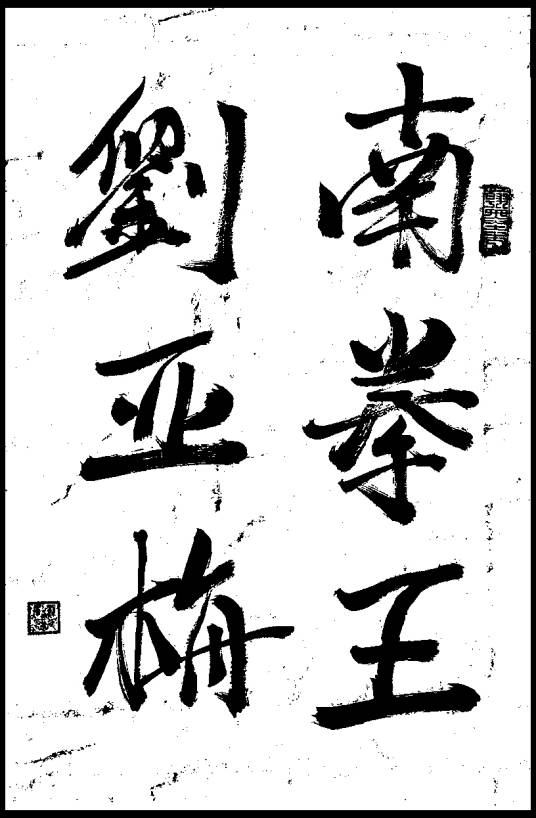 南拳王
劉亚梅